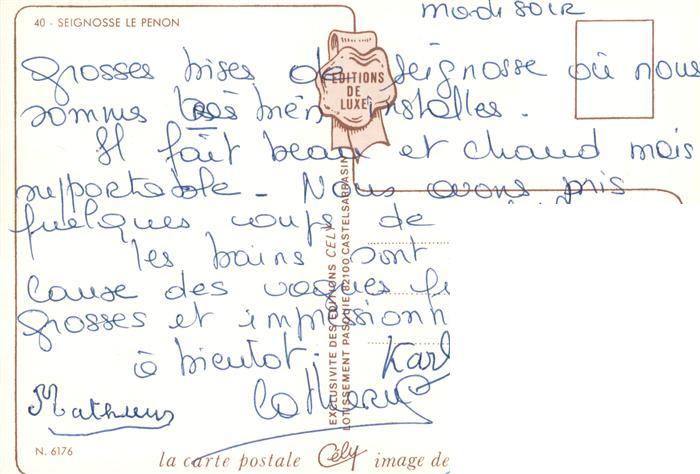 mardi soir
40 - SEIGNOSSE LE PENON
grosses bises de seignosse où nous
sommes très bien installes.
Il fait beau et chaud mais
supportable - Nous avons pris
quelques coups de
les bains sont
cause des vagues
grosses et impressionn
à bientôt.
Karl
Mathieu
Catherine
EDITIONS
DE
LUXE
EXCLUSIVITE DES EDITIONS CELY
LOTISSEMENT PASQUIE 82100 CASTELSARRASIN
N. 6176
la carte postale Cély image de